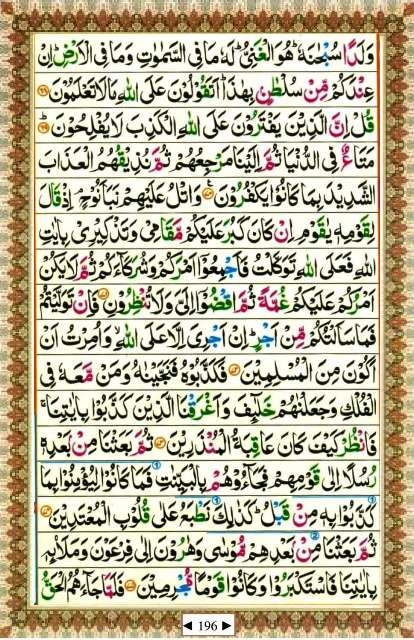 وَلَدًا سُبْحٰنَهٗ ؕ هُوَ الْغَنِیُّ ؕ لَهٗ مَا فِی السَّمٰوٰتِ وَمَا فِی الْاَرْضِ ؕ اِنْ
عِنْدَكُمْ مِّنْ سُلْطٰنٍۭ بِهٰذَا ؕ اَتَقُوْلُوْنَ عَلَی اللّٰهِ مَا لَا تَعْلَمُوْنَ ﴿۶۸﴾
قُلْ اِنَّ الَّذِیْنَ یَفْتَرُوْنَ عَلَی اللّٰهِ الْكَذِبَ لَا یُفْلِحُوْنَ ﴿۶۹﴾
مَتَاعٌ فِی الدُّنْیَا ثُمَّ اِلَیْنَا مَرْجِعُهُمْ ثُمَّ نُذِیْقُهُمُ الْعَذَابَ
الشَّدِیْدَ بِمَا كَانُوْا یَكْفُرُوْنَ ﴿۷۰﴾ وَاتْلُ عَلَیْهِمْ نَبَاَ نُوْحٍ ۘ اِذْ قَالَ
لِقَوْمِهٖ یٰقَوْمِ اِنْ كَانَ كَبُرَ عَلَیْكُمْ مَّقَامِیْ وَتَذْكِیْرِیْ بِاٰیٰتِ
اللّٰهِ فَعَلَی اللّٰهِ تَوَكَّلْتُ فَاَجْمِعُوْۤا اَمْرَكُمْ وَشُرَكَآءَكُمْ ثُمَّ لَا یَكُنْ
اَمْرُكُمْ عَلَیْكُمْ غُمَّةً ثُمَّ اقْضُوْۤا اِلَیَّ وَلَا تُنْظِرُوْنِ ﴿۷۱﴾ فَاِنْ تَوَلَّیْتُمْ
فَمَا سَاَلْتُكُمْ مِّنْ اَجْرٍ ؕ اِنْ اَجْرِیَ اِلَّا عَلَی اللّٰهِ ۙ وَاُمِرْتُ اَنْ
اَكُوْنَ مِنَ الْمُسْلِمِیْنَ ﴿۷۲﴾ فَكَذَّبُوْهُ فَنَجَّیْنٰهُ وَمَنْ مَّعَهٗ فِی
الْفُلْكِ وَجَعَلْنٰهُمْ خَلٰٓئِفَ وَاَغْرَقْنَا الَّذِیْنَ كَذَّبُوْا بِاٰیٰتِنَا ۚ
فَانْظُرْ كَیْفَ كَانَ عَاقِبَةُ الْمُنْذَرِیْنَ ﴿۷۳﴾ ثُمَّ بَعَثْنَا مِنْۢ بَعْدِهٖ
رُسُلًا اِلٰی قَوْمِهِمْ فَجَآءُوْهُمْ بِالْبَیِّنٰتِ فَمَا كَانُوْا لِیُؤْمِنُوْا بِمَا
كَذَّبُوْا بِهٖ مِنْ قَبْلُ ؕ كَذٰلِكَ نَطْبَعُ عَلٰی قُلُوْبِ الْمُعْتَدِیْنَ ﴿۷۴﴾
ثُمَّ بَعَثْنَا مِنْۢ بَعْدِهِمْ مُّوْسٰی وَهٰرُوْنَ اِلٰی فِرْعَوْنَ وَمَلَا۟ئِهٖ
بِاٰیٰتِنَا فَاسْتَكْبَرُوْا وَكَانُوْا قَوْمًا مُّجْرِمِیْنَ ﴿۷۵﴾ فَلَمَّا جَآءَهُمُ الْحَقُّ
◄ 196 ►